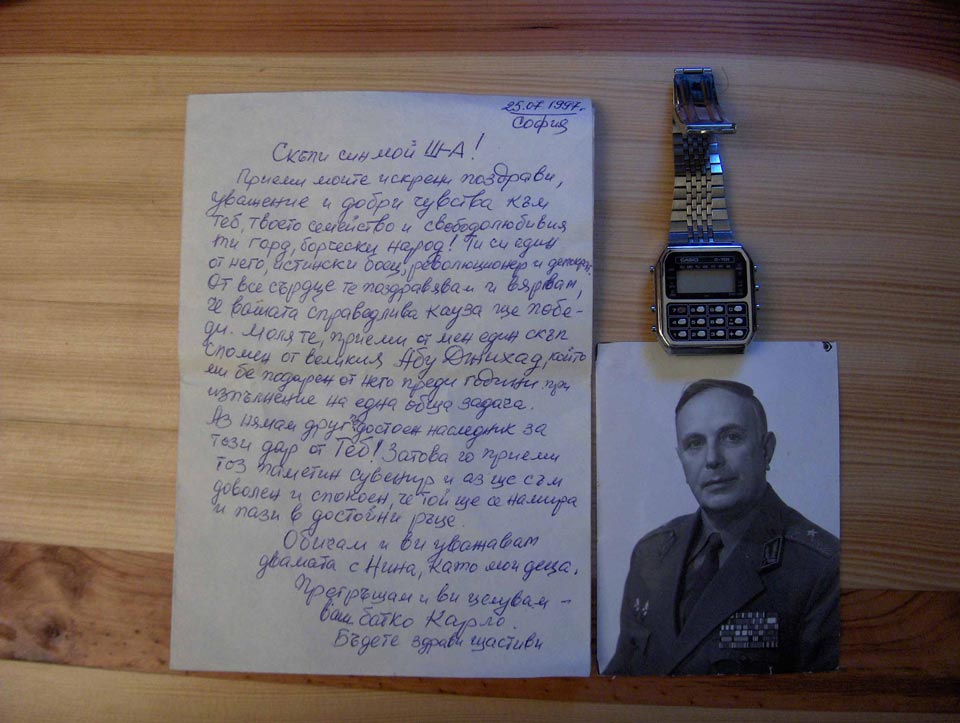 25.07.1997г.
София
Скъпи син мой Ш-А!
Приеми моите искрени поздрави,
уважение и добри чувства към
теб, твоето семейство и свободолюбивия
ти горд, борчески народ! Ти си един
от него, истински боец, революционер и
От все сърдце те поздравявам и вярвам,
че вашата справедлива кауза ще побе-
ди. Моля те, приеми от мен един скъп
спомен от великия Абу Джихад, който
ми бе подарен от него преди години при
изпълнение на една обща задача.
Аз нямам друг достоен наследник за
този дар от Теб! Затова го приеми
тоз паметин сувенир и аз ще съм
доволен и спокоен, че той ще се намира
и пази в достойни ръце.
Обичам и ви уважавам
двамата с Нина, като мои деца.
Прегръщам и ви целувам –
ваш батко Карло.
Бъдете здрави щастиви
CASIO